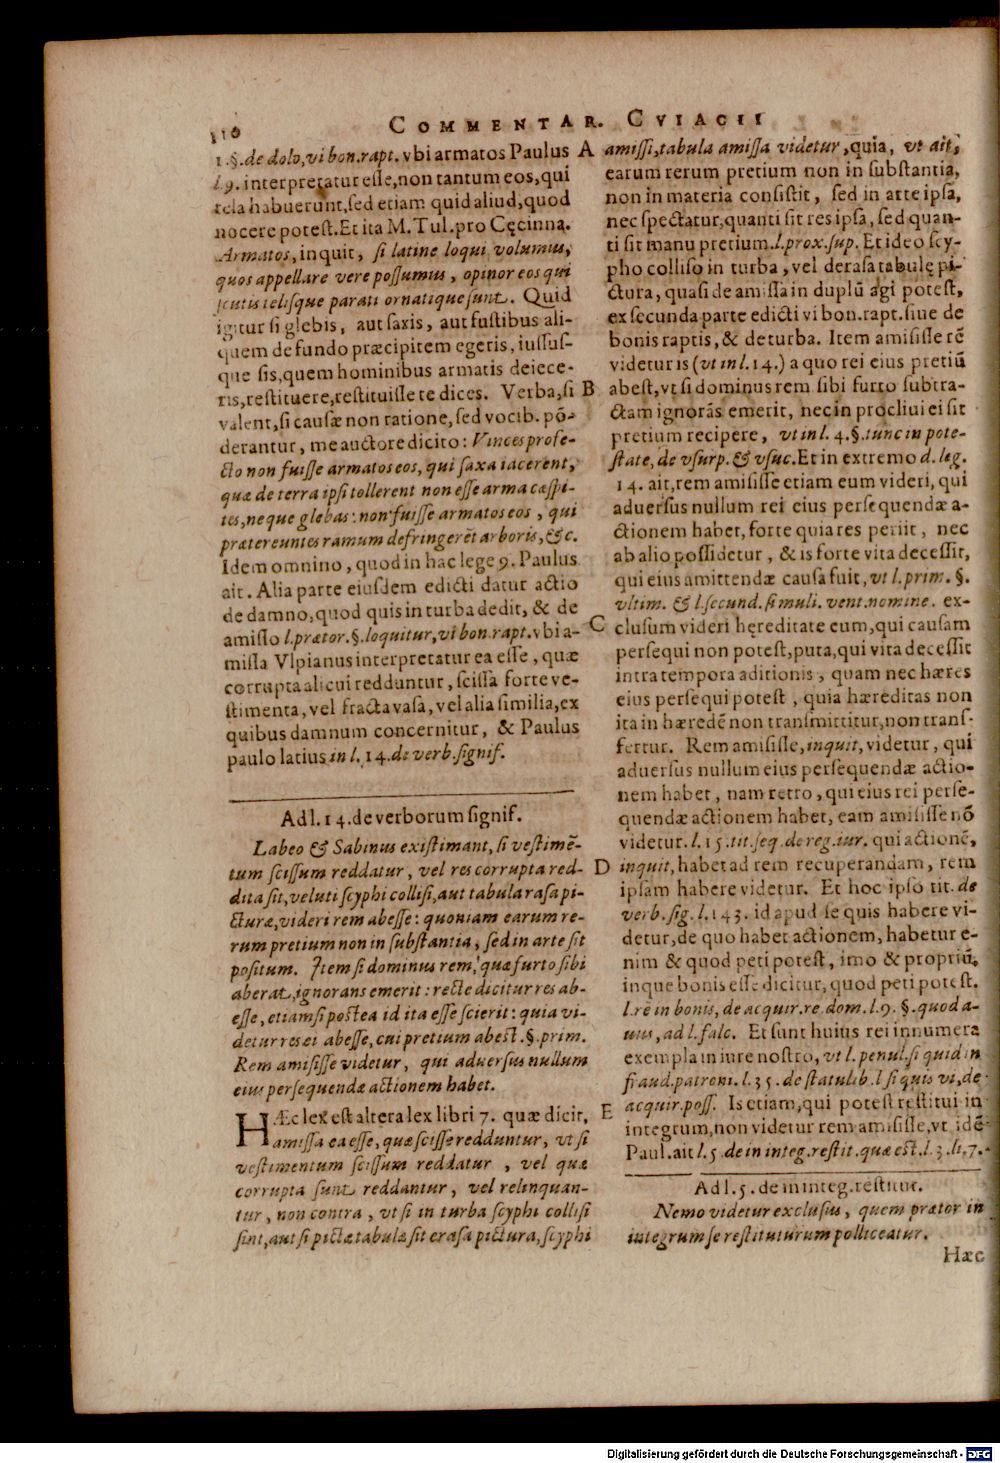 110
COMMENTAR. CVIACII
1.§.de dolo,vi bon.rapt.vbi armatos Paulus
l.9.interpretatur esse,non tantum eos,qui
tela habuerunt,sed etiam quid aliud,quod
nocere potest.Et ita M.Tul.pro Cęcinna.
Armatos,inquit, si latine loqui volumus,
quos appellare vere possumus, opinor eos qui
scutis telisque parati ornatique sunt. Quid
igitur si glebis, aut saxis, aut fustibus ali-
quem de fundo præcipitem egeris, iussus-
que sis,quem hominibus armatis deiece-
ris,restituere,restituisse te dices. Verba,si
valent,si causæ non ratione,sed vocib.pō-
derantur, me auctore dicito: Vinces profe-
cto non fuisse armatos eos, qui saxa iacerent,
quæ de terra ipsi tollerent non esse arma cæspi-
tes,neque glebas: non fuisse armatos eos, qui
prætereuntes ramum defringerēt arboris,&c.
Idem omnino, quod in hac lege 9. Paulus
ait. Alia parte eiusdem edicti datur actio
de damno,quod quis in turba dedit, & de
amisso l.prætor.§.loquitur,vi bon.rapt.vbi a-
missa Vlpianus interpretatur ea esse, quæ
corrupta alicui redduntur, scissa forte ve-
stimenta, vel fracta vasa, vel alia similia,ex
quibus damnum concernitur, & Paulus
paulo latius in l.14.de verb.signif.
Ad l.14.de verborum signif.
Labeo & Sabinus existimant, si vestimē-
tum scissum reddatur, vel res corrupta red-
dita sit,veluti scyphi collisi,aut tabula rasa pi-
cturæ,videri rem abesse: quoniam earum re-
rum pretium non in substantia, sed in arte sit
positum. Item si dominus rem, quæ furto sibi
aberat,ignorans emerit: recte dicitur res ab-
esse, etiamsi postea id ita esse scierit: quia vi-
detur res ei abesse, cui pretium abest.§.prim.
Rem amisisse videtur, qui aduersus nullum
eius persequendæ actionem habet.
HÆc lex est altera lex libri 7. quæ dicit,
amissa ea esse, quæ scisse redduntur, vt si
vestimentum scissum reddatur, vel quæ
corrupta sunt reddantur, vel relinquan-
tur, non contra, vt si in turba scyphi collisi
sint,aut si pictæ tabulæ sit erasa pictura,scyphi
A
B
C
D
E
amissi,tabula amissa videtur,quia, vt ait,
earum rerum pretium non in substantia,
non in materia consistit, sed in arte ipsa,
nec spectatur,quanti sit res ipsa, sed quan-
ti sit manu pretium.l.prox.sup. Et ideo scy-
pho colliso in turba, vel derasa tabulę pi-
ctura, quasi de amissa in duplū agi potest,
ex secunda parte edicti vi bon.rapt.siue de
bonis raptis,& de turba. Item amisisse rē
videtur is (vt in l.14.) a quo rei eius pretiū
abest,vt si dominus rem sibi furto subtra-
ctam ignorās emerit, nec in procliui ei sit
pretium recipere, vt in l. 4.§.tunc in pote-
state, de vsurp. & vsuc.Et in extremo d.leg.
14. ait,rem amisisse etiam eum videri, qui
aduersus nullum rei eius persequendæ a-
ctionem habet, forte quia res periit, nec
ab alio possidetur, & is forte vita decessit,
qui eius amittendæ causa fuit, vt l.prim. §.
vltim. & l.secund. si muli. vent.nomine. ex-
clusum videri hęreditate eum,qui causam
persequi non potest,puta,qui vita decessit
intra tempora aditionis, quam nec hæres
eius persequi potest, quia hæreditas non
ita in hæredē non transmittitur,non trans-
fertur. Rem amisisse,inquit,videtur, qui
aduersus nullum eius persequendæ actio-
nem habet, nam retro, qui eius rei perse-
quendæ actionem habet, eam amisisse nō
videtur.l.15.tit.seq.de reg.iur. qui actionē,
inquit,habet ad rem recuperandam, rem
ipsam habere videtur. Et hoc ipso tit. de
verb.sig.l.143. id apud se quis habere vi-
detur,de quo habet actionem,habetur e-
nim & quod peti potest, imo & propriū,
inque bonis esse dicitur, quod peti potest.
l.rē in bonis, de acquir.re.dom.l.9. §.quod a-
uus, ad l.falc. Et sunt huius rei innumera
exempla in iure nostro, vt l.penul.si quid in
fraud.patroni.l.35.de statulib.l si quis vi,de
acquir.poss. Is etiam,qui potest restitui in
integrum,non videtur rem amisisse,vt idē
Paul.ait l.5.de in integ.restit.quæ est.l.3.li.7.
Ad l.5.de in integ.restitut.
Nemo videtur exclusus, quem prætor in
integrum se restituturum polliceatur.
Hæc
Digitalisierung gefördert durch die Deutsche Forschungsgemeinschaft - DFG